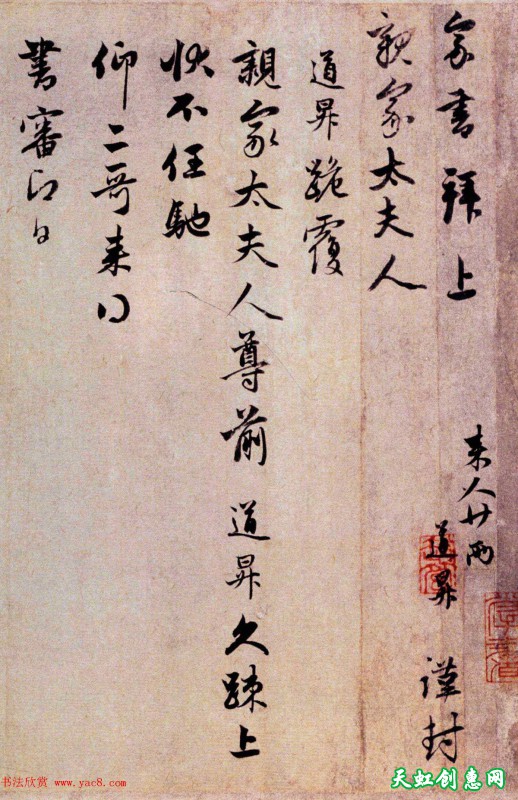 家書拜上
来人廿兩
道昇 謹封
親家太夫人
道昇跪覆
親家太夫人尊前 道昇久疎上
狀不任馳
仰二哥来得
書審即日
书法欣赏 www.yac8.com
天虹创惠网